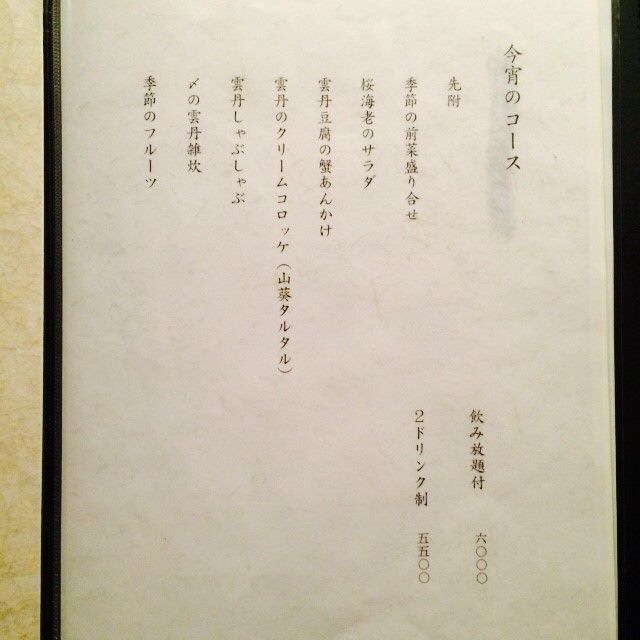 今宵のコース
先附
季節の前菜盛り合せ
桜海老のサラダ
雲丹豆腐の蟹あんかけ
雲丹のクリームコロッケ(山葵タルタル)
雲丹しゃぶしゃぶ
〆の雲丹雑炊
季節のフルーツ
飲み放題付 六〇〇〇
2ドリンク制 五五〇〇